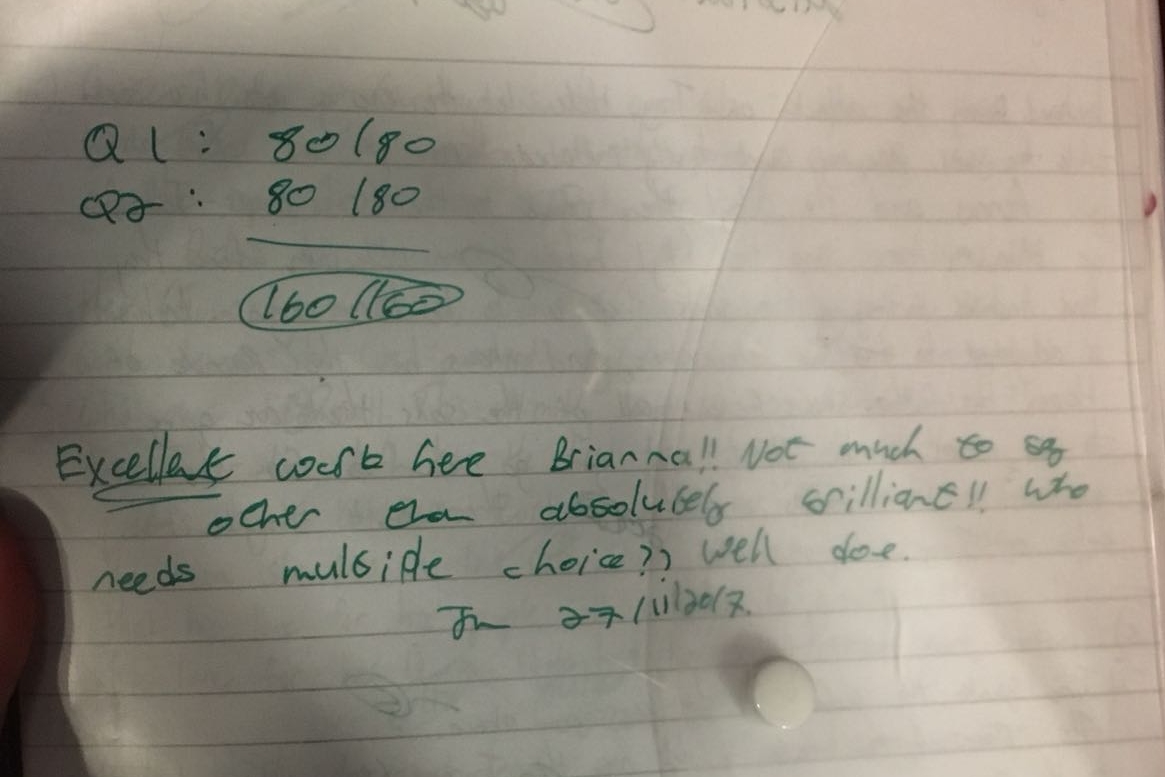 Q1: 80/80
Q2: 80/80
160/160
Excellent work here Brianna!! Not much to say
other than absolutely brilliant!! Who
needs multiple choice?? Well done.
27/11/2017.